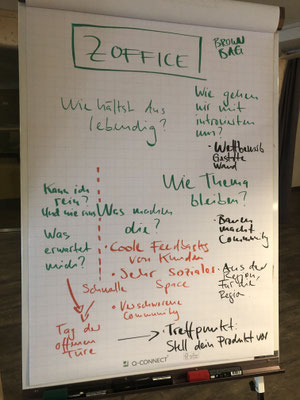 ZOFFICE
BROWN
BAG
Wie hältst dus
lebendig?
Wie gehen
wir mit
introvierten
um?
• Wettbewerb
Gästete
Wand
Kann ich
rein?
Und wie rein?
Was
erwartet
mich?
Tag der
offenen
Türe
Was machen
die?
• Coole Feedbacks
von Kunden
• Sehr soziales
Space
Schwelle
• Verschworene
Community
Wie Thema
bleiben?
• Bauen
macht
Community
• Aus der
Region
Für die
Region
→ Treffpunkt:
Stell dein Produkt vor
Q-CONNECT